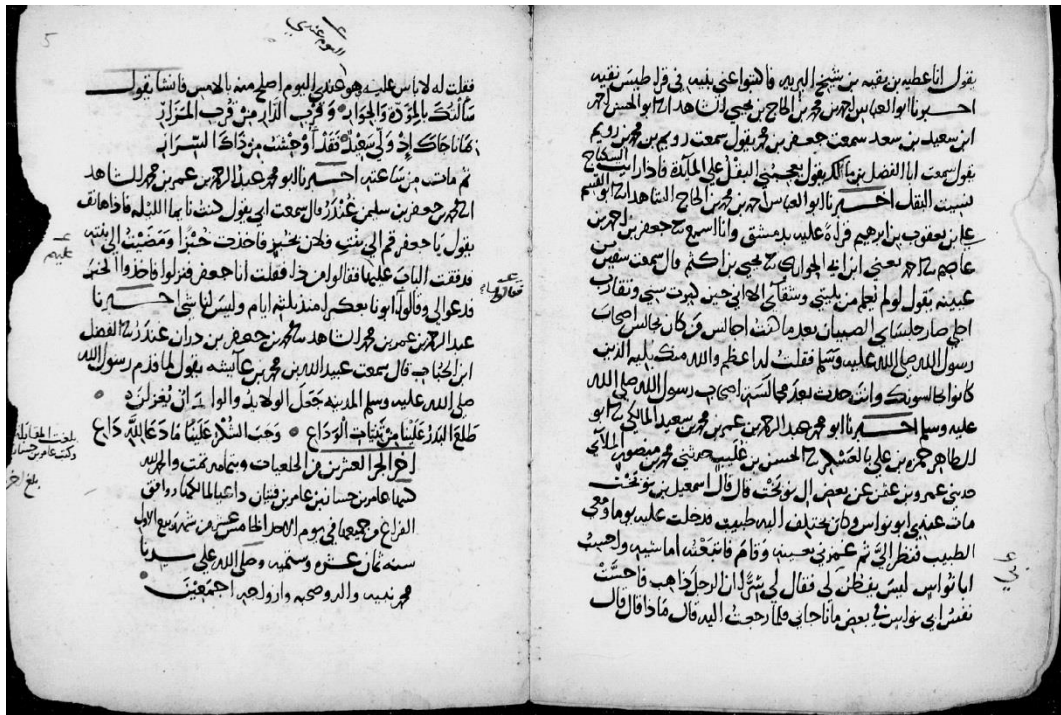 يقول انا عطيه بن بقيه بن شيخ البريه فاكتبوا عني بليه في قراطيس نقيه
اخبرنا ابو العباس احمد بن محمد بن الحاج بن يحيى الشاهد ابو الحسن احمد
ابن سعيد بن سعد سمعت جعفر بن محمد يقول سمعت رويم بن محمد بن رويم
يقول سمعت ابا الفضل بن يقول يعجبني البقل علي المائدة فاذا
نسيت البقل اخبرنا ابو العباس احمد بن محمد بن الحاج الشاهد ابو القسم
علي بن يعقوب بن ابرهيم قراءة عليه بدمشق وانا اسمع جعفر بن احمد بن
عاصم احمد يعني ابن ابي الحواري يحيى بن اكثم قال سمعت سفين بن
عيينه يقول لو لم نعلم من بليتي وشقائي الا اني حين كبرت سني وتقارب
اجلي صار جلسائي الصبيان بعد ما كنت اجالس من كان يجالس اصحاب
رسول الله صلى الله عليه وسلم فقلت له اعظم والله منك بليه الذين
كانوا يجالسونك وانت حدث بعد مجالسة اصحاب رسول الله صلى الله
عليه وسلم اخبرنا ابو محمد عبد الرحمن بن عمر بن محمد بن سعيد المالكي ابو
الطاهر حمزه بن علي بالعسكر الحسن بن غليب حدثني محمد بن منصور
حدثني عمرو بن عثمن عن بعض ال نوبخت قال قال اسمعيل بن نوبخت
مات عندي ابو نواس وكان يختلف اليه طبيب فدخلت عليه يوما ومعي
الطبيب فنظر الي ثم غمزني بعينه وقام فاتبعته اماشيه واحسب
ابا نواس ليس يفطن لي فقال لي سرا ان الرجل ذاهب فاحست
نفس ابي نواس في بعض ما ناجاني فلما رجعت اليه قال ماذا قال قال
5
اليوم عندي
فقلت له لا باس عليه هو عندي اليوم اصلح منه بالامس فانشا يقول
سالتك بالمودة والجوار وقرب الدار من قرب المزار
بما ناجاك اذ ولي سعيد فقد اوحشت من ذاك السرار
ثم مات من ساعته اخبرنا ابو محمد عبد الرحمن بن عمر بن محمد الشاهد
احمد بن جعفر بن سليمن غندر قال سمعت ابي يقول كنت نايما الليله فاذا هاتف
يقول يا جعفر قم الي بيت فلان بخبز فاخذت خبزا ومضيت الى بيته
فدققت الباب عليهم فقالوا من ذا فقلت انا جعفر فنزلوا فاخذوا الخبز
فدعوا لي وقالوا ابونا بعكبرا منذ ثلثه ايام وليس لنا شي اخبرنا
عبد الرحمن بن عمر بن محمد الشاهد احمد بن جعفر بن دران غندر الفضل
ابن الحباب قال سمعت عبيد الله بن محمد بن عائشه يقول لما قدم رسول الله
صلى الله عليه وسلم المدينه جعل الولايد والولدان يقولن
طلع البدر علينا من ثنيات الوداع وجب الشكر علينا ما دعا لله داع
اخر الجز العشرين من الخلعيات وبتمامه تمت والحمد لله
كتبها عامر بن حسان بن عامر بن فتيان داعيا لمالكها ووافق
الفراغ من جميعها في يوم الاحد الخامس عشر من شهر ربيع الاول
سنه ثمان عشره وستميه وصلى الله على سيدنا
محمد نبيه واله وصحبه وازواجه اجمعين
عليهم
فقالوا
بلغت المقابله
وكتب عامر بن حسان
بلغ اخر